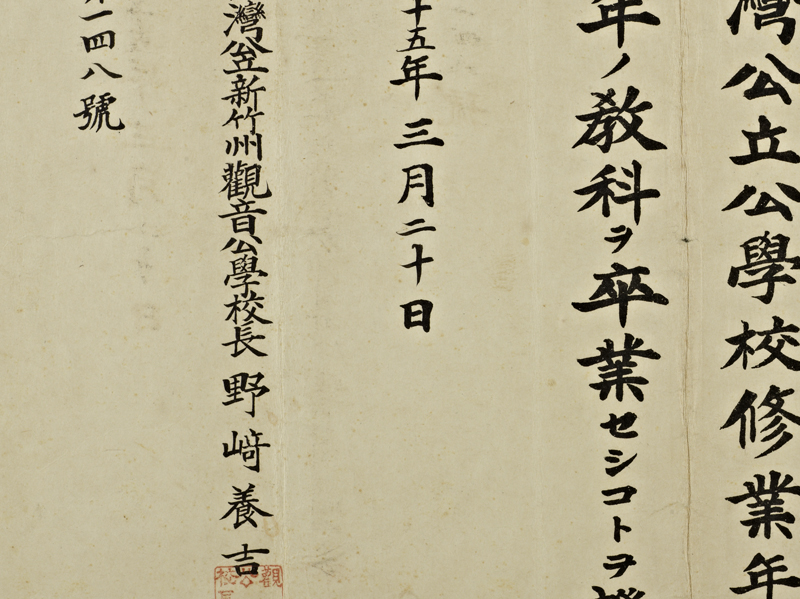 灣公立公學校修業年
年ノ教科ヲ卒業セシコトヲ
十五年三月二十日
灣公立新竹州觀音公學校長 野﨑養吉
一四八號
觀